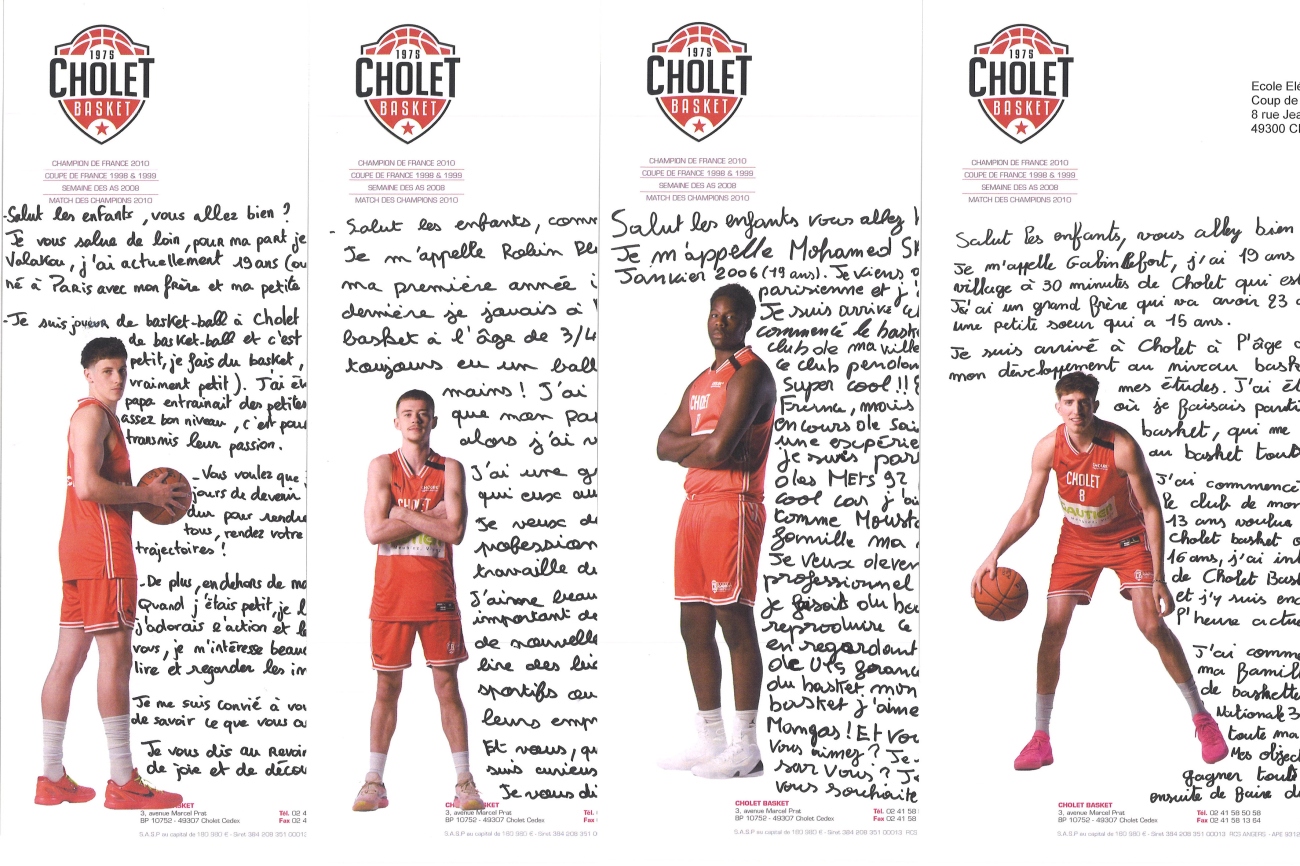 1975
CHOLET
BASKET
CHAMPION DE FRANCE 2010
COUPE DE FRANCE 1998 & 1999
SEMAINE DES AS 2008
MATCH DES CHAMPIONS 2010
-Salut les enfants, vous allez bien ?
Je vous salue de loin, pour ma part je
Valakou, j'ai actuellement 19 ans (ou
né à Paris avec mon frère et ma petite
-Je suis joueur de basket-ball à Cholet
de basket-ball et c'est
petit, je fais du basket,
vraiment petit). J'ai
papa entrainait des petites
assez bon niveau, c'est
transmis leur passion.
-Vous voulez que
jours de devenir
dur pour rendre
tous, rendez votre
trajectoires !
-De plus, en dehors de
Quand j'étais petit, je
j'adorais l'action et
vous, je m'intéresse
lire et regarder les
Je me suis convié à
de savoir ce que vous
Je vous dis au revoir
de joie et de
CHOLET BASKET
3, avenue Marcel Prat
BP 10752 - 49307 Cholet Cedex
Tél. 02 4
Fax 02 4
S.A.S.P au capital de 180 980 € - Siret 384 208 351 00013
1975
CHOLET
BASKET
CHAMPION DE FRANCE 2010
COUPE DE FRANCE 1998 & 1999
SEMAINE DES AS 2008
MATCH DES CHAMPIONS 2010
- Salut les enfants,
Je m'appelle Robin
ma première année
dernière je jouais à
basket à l'âge de 3/4
toujours eu un
mains ! J'ai
que mon
alors j'ai
J'ai une
qui eux
Je veux
profession
travaille
J'aime
important de
de nouvelle
lire des
sportifs
leurs
Et vous,
suis curieux
Je vous
CHOLET BASKET
3, avenue Marcel Prat
BP 10752 - 49307 Cholet Cedex
Tél.
Fax
S.A.S.P au capital de 180 980 € - Siret 384 208 351
1975
CHOLET
BASKET
CHAMPION DE FRANCE 2010
COUPE DE FRANCE 1998 & 1999
SEMAINE DES AS 2008
MATCH DES CHAMPIONS 2010
Salut les enfants vous allez
Je m'appelle Mohamed
Janvier 2006 (19 ans). Je viens
parisienne et j'
Je suis arrivé
commencé le
club de ma ville
ce club
Super cool !!
France, mais
en cours de
une
je suis
des METS 92
cool car j'
comme
famille ma
Je veux
professionnel
je faisait du
reproduire ce
en regardant
de
du basket, mon
basket j'aime
Mangas ! Et
vous aimez ? Je
sar vous ? Je
vous souhaite
CHOLET
CHOLET BASKET
3, avenue Marcel Prat
BP 10752 - 49307 Cholet Cedex
Tél. 02 41 58
Fax 02 41 58
S.A.S.P au capital de 180 980 € - Siret 384 208 351 00013 RCS
1975
CHOLET
BASKET
CHAMPION DE FRANCE 2010
COUPE DE FRANCE 1998 & 1999
SEMAINE DES AS 2008
MATCH DES CHAMPIONS 2010
Ecole Elé
Coup de
8 rue Jea
49300 C
Salut les enfants, vous allez bien
Je m'appelle Gabin Lefort, j'ai 19 ans
village à 30 minutes de Cholet qui
J'ai un grand frère qui va avoir 23
une petite soeur qui a 15 ans.
Je suis arrivé à Cholet à l'âge
mon développement au niveau
mes études. J'ai
où je faisais
basket, qui me
au basket
J'ai commencé
le club de mon
13 ans voulue
Cholet basket
16 ans, j'ai
de Cholet
et j'y suis
l'heure
J'ai
ma famill
de
Nationale 3
toute ma
Mes
gagner
ensuite de faire
CHOLET
8
GAUTIER
CHOLET BASKET
3, avenue Marcel Prat
BP 10752 - 49307 Cholet Cedex
Tél. 02 41 58 50 58
Fax 02 41 58 13 64
S.A.S.P au capital de 180 980 € - Siret 384 208 351 00013 RCS ANGERS - APE